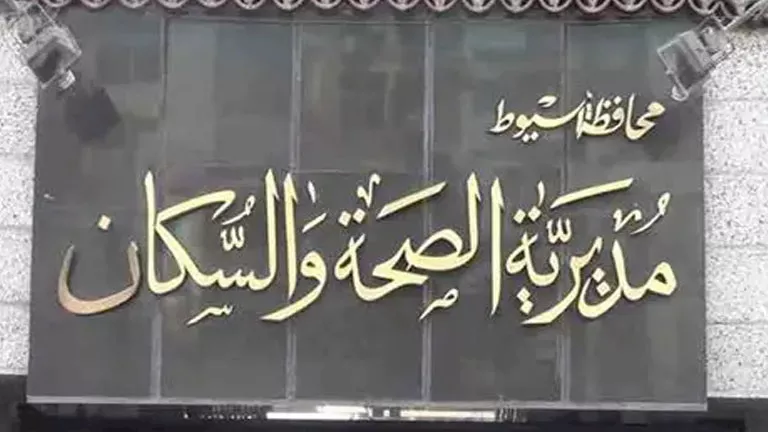 محافظة أسيوط
مديريَّة الصحة وَالسُّكان